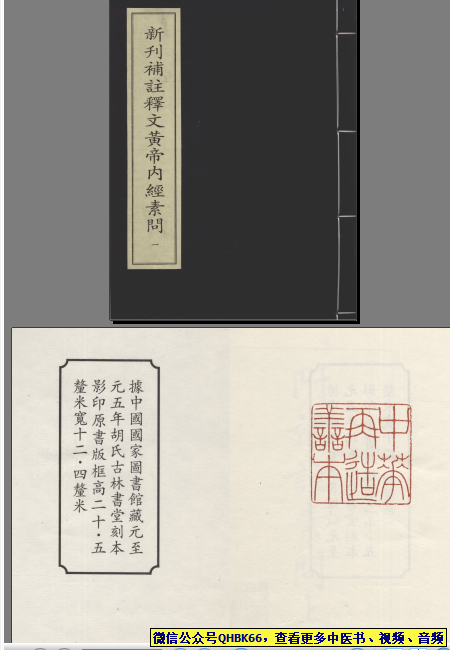 新刊補註釋文黃帝內經素問
一
據中國國家圖書館藏元至
元五年胡氏古林書堂刻本
影印原書版框高二十·五
釐米寬十二·四釐米
中華
再造
善本
微信公众号QHBK66，查看更多中医书、视频、音频